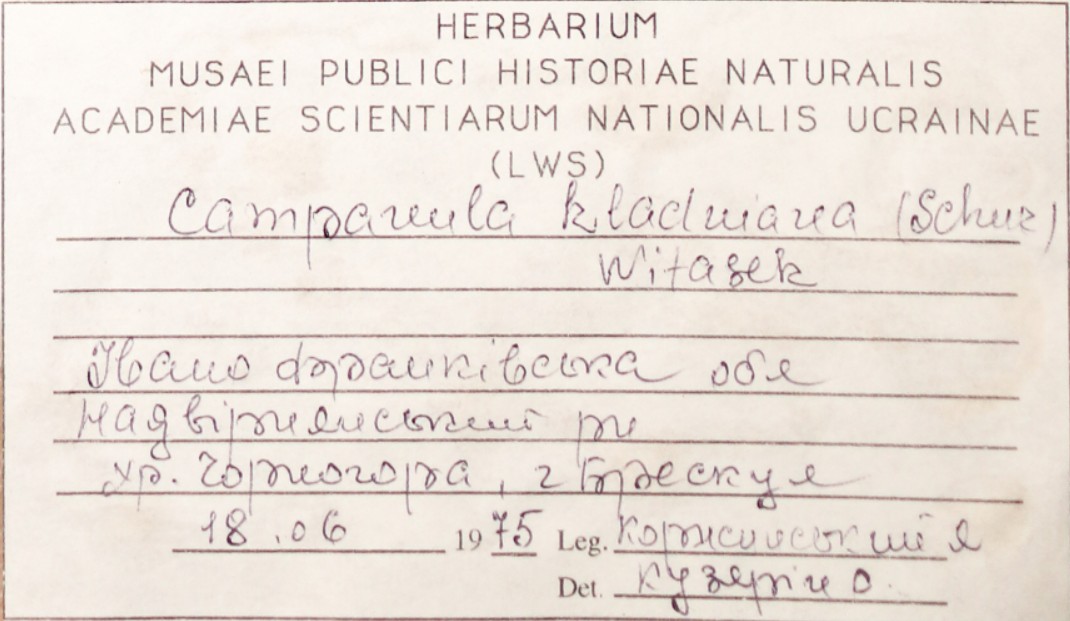 HERBARIUM
MUSAEI PUBLICI HISTORIAE NATURALIS
ACADEMIAE SCIENTIARUM NATIONALIS UCRAINAE
(LWS)
Campanula kladniana (Schur)
Witasek
Івано франківська обл
Надвірнянський рн
хр. Чорногора, г Брескул
18.06 1975 Leg. Коржинський Я
Det. Кузярін О.